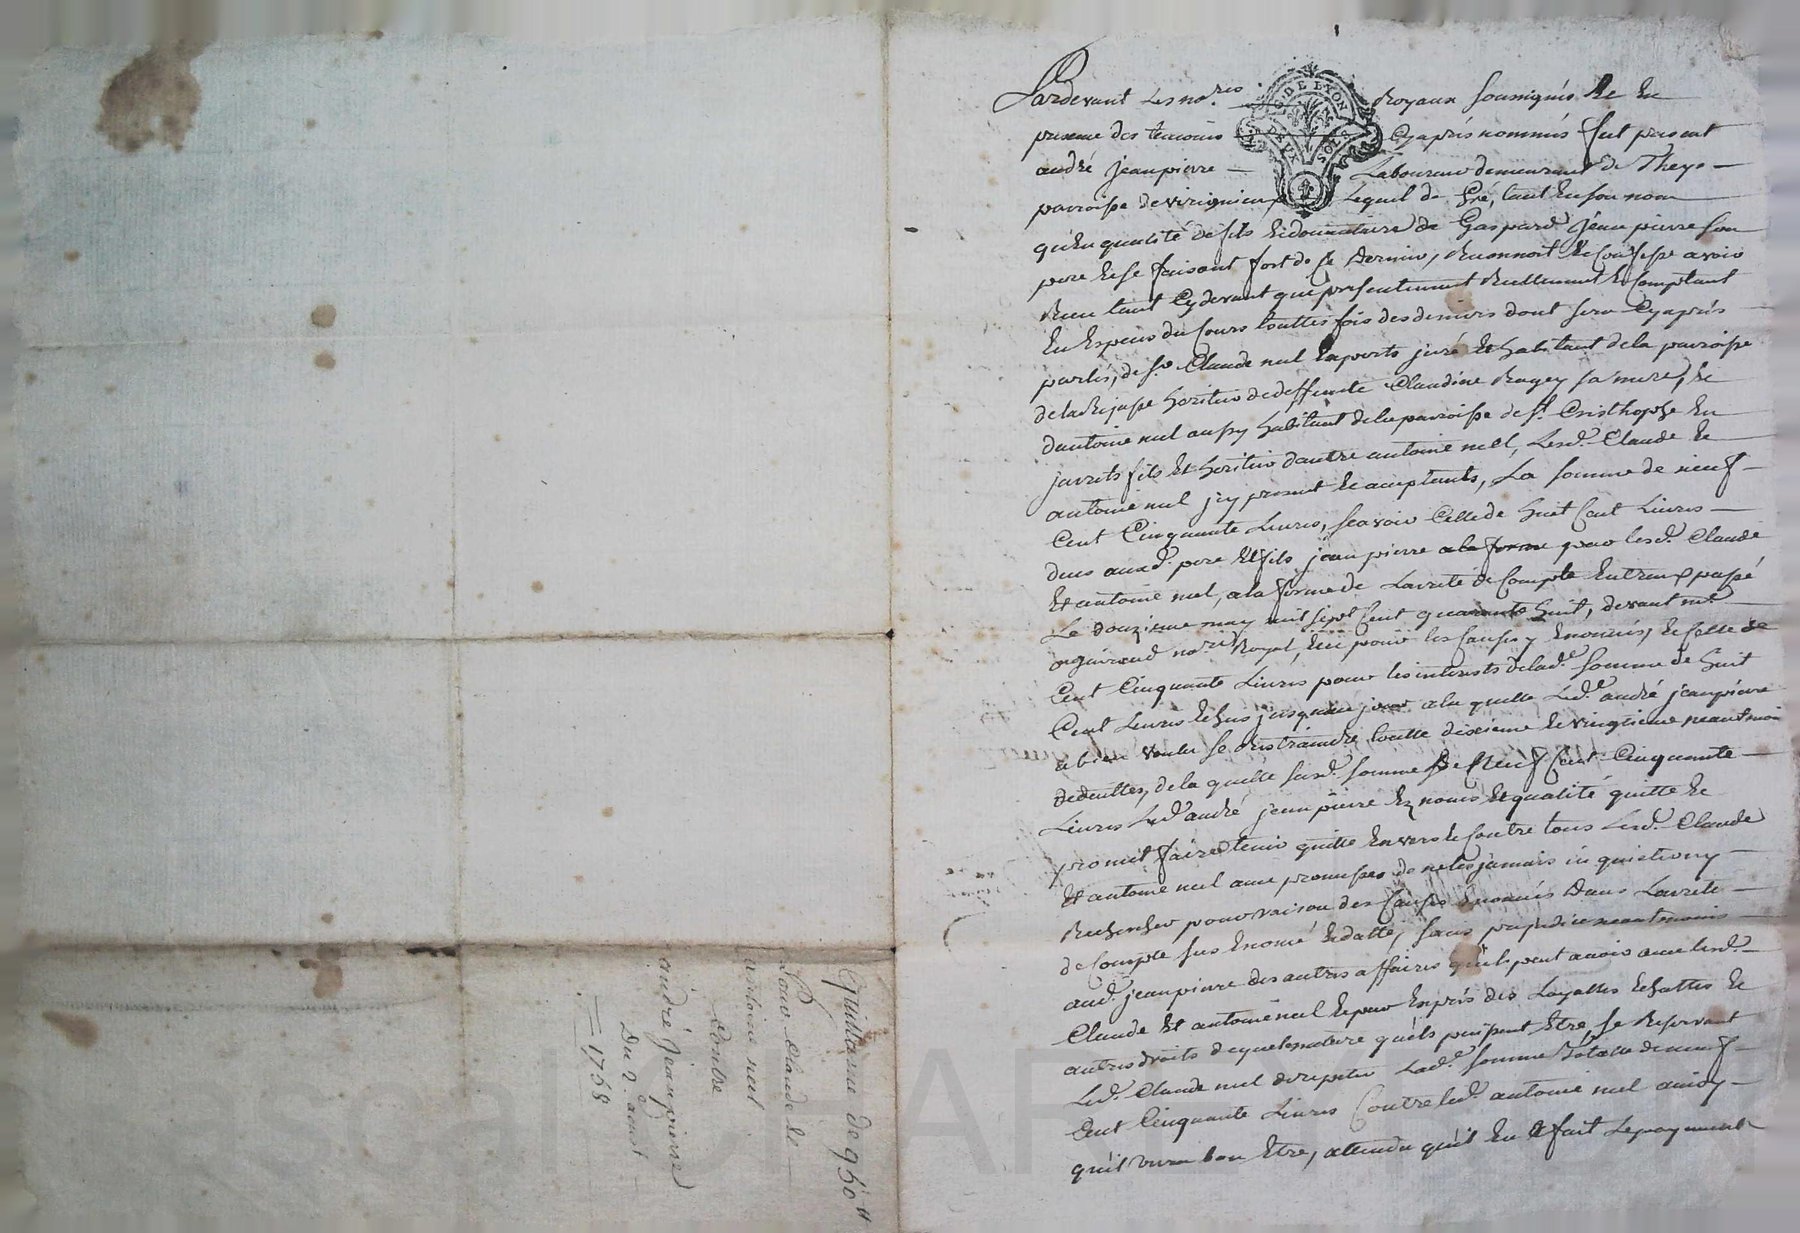 Pardevant Les no.res Royaux soussignés Et En
presence des temoins Cyaprès nommés fut present
andré jeanpierre — Laboureur demeurant de Theys —
parroisse de virignieu Lequel de Gré, tant En son nom
qu'En qualité de fils Et donnataire de Gaspard jeanpierre son
pere Et se faisant fort de Ce dernier, Reconnoit Et Confesse avoir
Receu tant Cydevant que presentement Reellement Et Comptant
En Especes du Cours touttes fois des deniers dont sera Cyaprès
parlés, de sr. Claude nel Experts juré Et habitant de la parroisse
de la Rejasse heritier de deffunte Claudine Ragey sa mere, Et
d'antoine nel aussy habitant de la parroisse de st. Cristhophe En
jarrets fils Et heritier d'autre antoine nel, Lesd. Claude Et
antoine nel jcy present Et acceptants, La somme de neuf
Cent Cinquante Livres, scavoir Celle de huit Cent Livres —
deus auxd. pere Et fils jeanpierre a la forme par lesd. Claude
Et antoine nel, a la forme de L'arreté de Compte Entr'eux passé
Le douzieme may mil sept Cent quarante huit, devant me.
no.re Royal, pour les Causes y Enoncées, Et Celle de
Cent Cinquante Livres pour les interests de lad.e somme de huit
Cent Livres Echus jusqu'au jour a la quelle Led.e andré jeanpierre
a bien voulu se restraindre, toutte dixieme Et vingtieme neantmoins
deduittes, de la quelle susd. somme de Neuf Cent Cinquante —
Livres Led. andré jeanpierre Ez noms Et qualité quitte Et
promet faire tenir quitte Envers Et Contre tous Lesd. Claude
Et antoine nel avec promesses de ne les jamais inquietter ny —
Rechercher pour raison des Causes Enoncés Dans L'arreté —
de Compte sus Enoncé Et datté, sans prejudice neantmoins —
aud. jeanpierre des autres affaires qu'ils peut avoir avec lesd. —
Claude Et antoine nel Et pour Exprés des Loyattes Echattes Et
autres droits de quele nature quels puissent Etre, se Reservant
Led. Claude nel de repeter Lad.e somme Totalle de neuf —
Cent Cinquante Livres Contre led. antoine nel ainsy —
qu'il verra bon Etre, attendu qu'il En a fait Le payement
Quittance de 950"
Pour Claude Et —
antoine nel
Contre
andré jeanpierre
Du 2e aoust
1758
G. DE LYON
DEUX SOLS